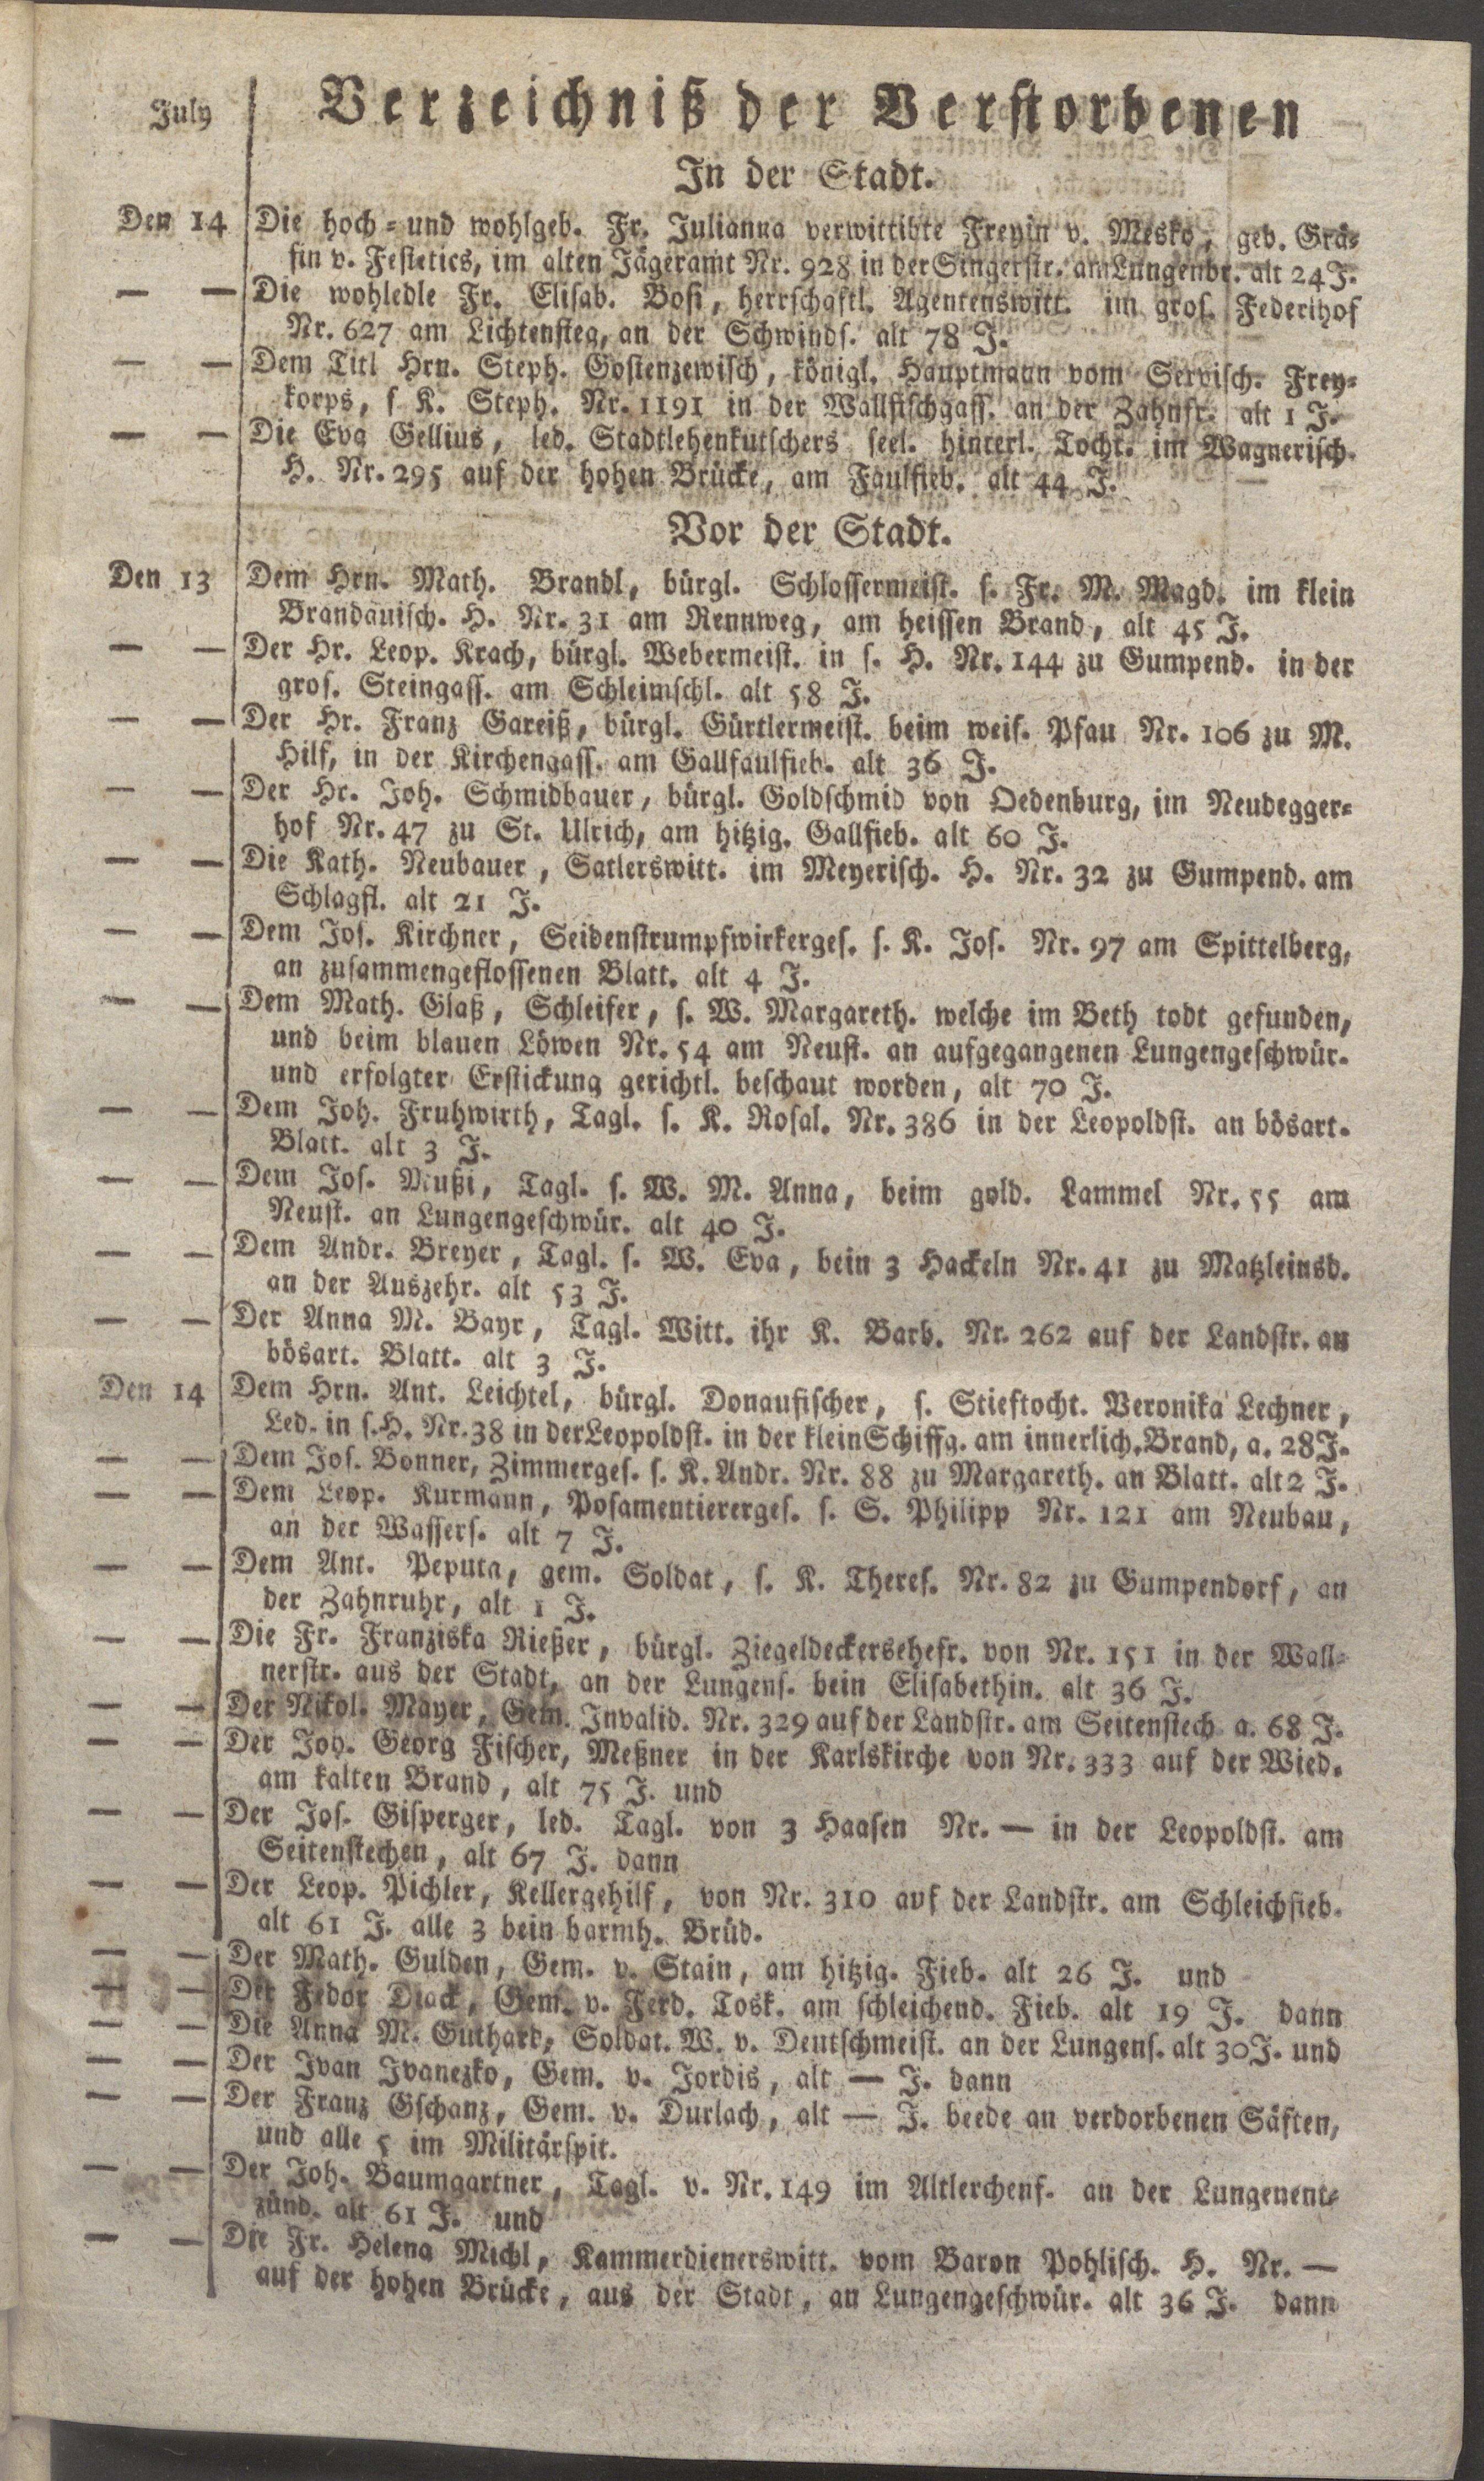 July
Verzeichniß der Verstorbenen
In der Stadt.
Den 14 Die hoch = und wohlgeb. Fr. Julianna verwittibte Freyin v. Mesko, geb. Grä=
fin v. Festetics, im alten Jägeramt Nr. 928 in der Singerstr. am Lungenbr. alt 24 J.
— — Die wohledle Fr. Elisab. Bosi, herrschaftl. Agentenswitt. im gros. Federlhof
Nr. 627 am Lichtensteg, an der Schwinds. alt 78 J.
— — Dem Titl Hrn. Steph. Gostenzewisch, königl. Hauptmann vom Servisch. Frey=
korps, s K. Steph. Nr. 1191 in der Wallfischgass. an der Zahnfr. alt 1 J.
— — Die Eva Gellius, led. Stadtlehenkutschers seel. hinterl. Tocht. im Wagnerisch.
H. Nr. 295 auf der hohen Brücke, am Faulfieb. alt 44 J.
Vor der Stadt.
Den 13 Dem Hrn. Math. Brandl, bürgl. Schlossermeist. s. Fr. M. Magd. im klein
Brandauisch. H. Nr. 31 am Rennweg, am heissen Brand, alt 45 J.
— — Der Hr. Leop. Krach, bürgl. Webermeist. in s. H. Nr. 144 zu Gumpend. in der
gros. Steingass. am Schleimschl. alt 58 J.
— — Der Hr. Franz Gareiß, bürgl. Gürtlermeist. beim weis. Pfau Nr. 106 zu M.
Hilf, in der Kirchengass. am Gallfaulfieb. alt 36 J.
— — Der Hr. Joh. Schmidbauer, bürgl. Goldschmid von Oedenburg, im Neudegger=
hof Nr. 47 zu St. Ulrich, am hitzig. Gallfieb. alt 60 J.
— — Die Kath. Neubauer, Satlerswitt. im Meyerisch. H. Nr. 32 zu Gumpend. am
Schlagfl. alt 21 J.
— — Dem Jos. Kirchner, Seidenstrumpfwirkerges. s. K. Jos. Nr. 97 am Spittelberg,
an zusammengeflossenen Blatt. alt 4 J.
— — Dem Math. Glaß, Schleifer, s. W. Margareth. welche im Beth todt gefunden,
und beim blauen Löwen Nr. 54 am Neust. an aufgegangenen Lungengeschwür.
und erfolgter Erstickung gerichtl. beschaut worden, alt 70 J.
— — Dem Joh. Fruhwirth, Tagl. s. K. Rosal. Nr. 386 in der Leopoldst. an bösart.
Blatt. alt 3 J.
— — Dem Jos. Mußi, Tagl. s. W. M. Anna, beim gold. Lammel Nr. 55 am
Neust. an Lungengeschwür. alt 40 J.
— — Dem Andr. Breyer, Tagl. s. W. Eva, bein 3 Hackeln Nr. 41 zu Matzleinsd.
an der Auszehr. alt 53 J.
— — Der Anna M. Bayr, Tagl. Witt. ihr K. Barb. Nr. 262 auf der Landstr. an
bösart. Blatt. alt 3 J.
Den 14 Dem Hrn. Ant. Leichtel, bürgl. Donaufischer, s. Stieftocht. Veronika Lechner,
Led. in s. H. Nr. 38 in der Leopoldst. in der klein Schiffg. am innerlich. Brand, a. 28 J.
— — Dem Jos. Bonner, Zimmerges. s. K. Andr. Nr. 88 zu Margareth. an Blatt. alt 2 J.
— — Dem Leop. Kurmann, Posamentiererges. s. S. Philipp Nr. 121 am Neubau,
an der Wassers. alt 7 J.
— — Dem Ant. Peputa, gem. Soldat, s. K. Theres. Nr. 82 zu Gumpendorf, an
der Zahnruhr, alt 1 J.
— — Die Fr. Franziska Rießer, bürgl. Ziegeldeckersehefr. von Nr. 151 in der Wall=
nerstr. aus der Stadt, an der Lungens. bein Elisabethin. alt 36 J.
— — Der Nikol. Mayer, Gem. Invalid. Nr. 329 auf der Landstr. am Seitenstech. a. 68 J.
— — Der Joh. Georg Fischer, Meßner in der Karlskirche von Nr. 333 auf der Wied.
am kalten Brand, alt 75 J. und
— — Der Jos. Gisperger, led. Tagl. von 3 Haasen Nr. — in der Leopoldst. am
Seitenstechen, alt 67 J. dann
— — Der Leop. Pichler, Kellergehilf, von Nr. 310 auf der Landstr. am Schleichfieb.
alt 61 J. alle 3 bein barmh. Brüd.
— — Der Math. Gulden, Gem. v. Stain, am hitzig. Fieb. alt 26 J. und
— — Der Fedor Diack, Gem. v. Ferd. Tosk. am schleichend. Fieb. alt 19 J. dann
— — Die Anna M. Guthard, Soldat. W. v. Deutschmeist. an der Lungens. alt 30 J. und
— — Der Ivan Ivanezko, Gem. v. Jordis, alt — J. dann
— — Der Franz Gschanz, Gem. v. Durlach, alt — J. beede an verdorbenen Säften,
und alle 5 im Militärspit.
— — Der Joh. Baumgartner, Tagl. v. Nr. 149 im Altlerchenf. an der Lungenent=
zünd. alt 61 J. und
— — Die Fr. Helena Michl, Kammerdienerswitt. vom Baron Pohlisch. H. Nr. —
auf der hohen Brücke, aus der Stadt, an Lungengeschwür. alt 36 J. dann